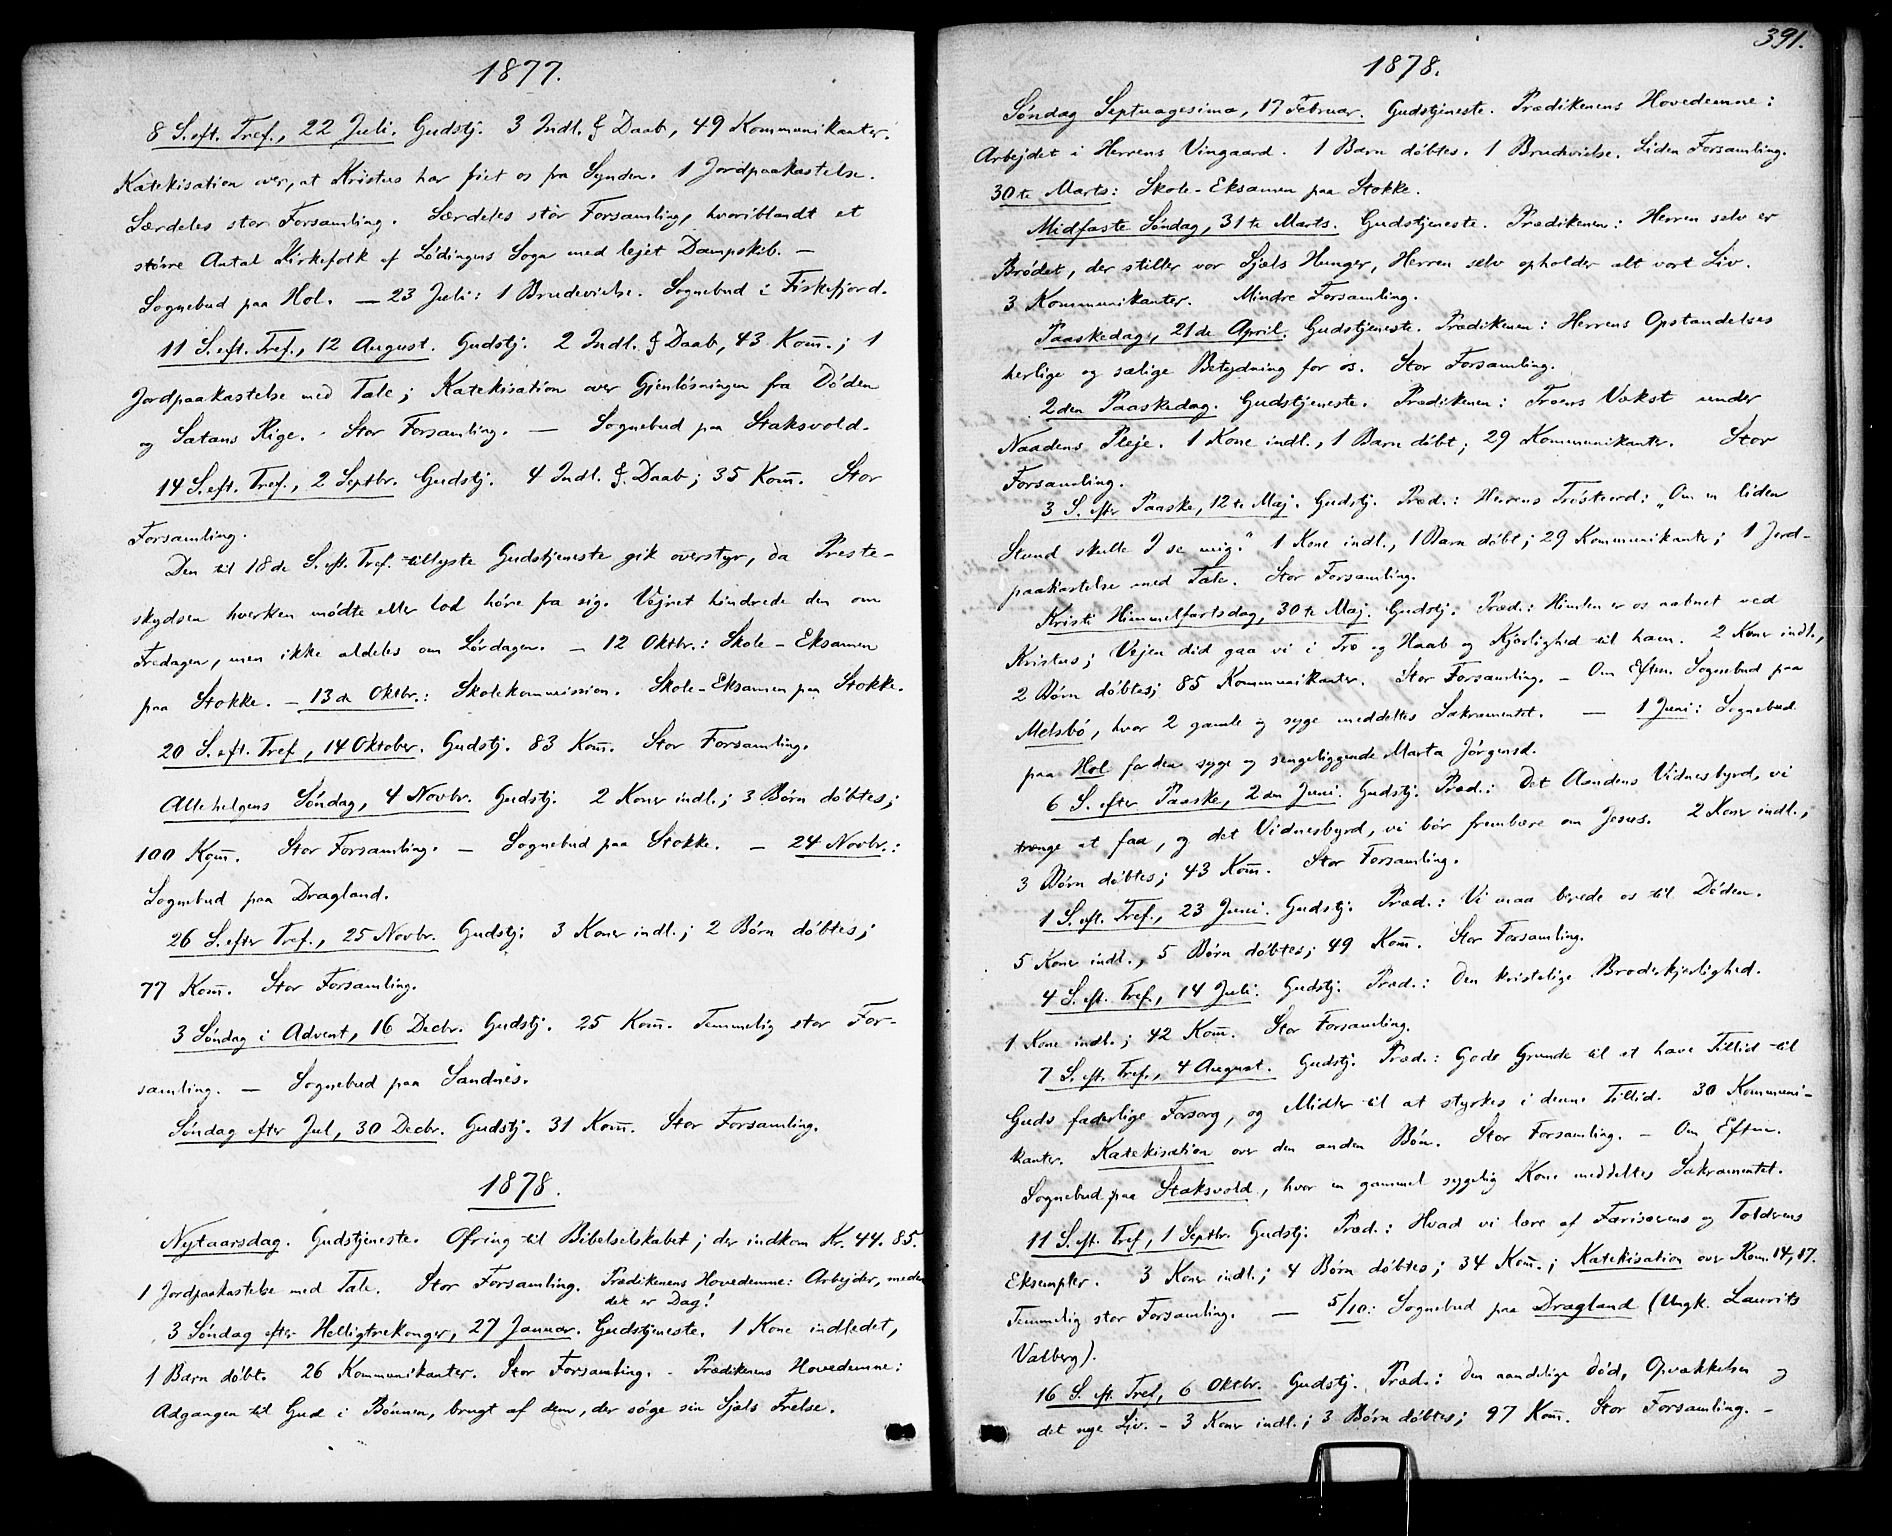 1877.
8 S. eft. Tref., 22 Juli. Gudstj. 3 Indl. & Daab, 49 Kommunikanter.
Katekisation over, at Kristus har friet os fra Synden. 1 Jordpaakastelse.
Særdeles stor Forsamling. Særdeles stor Forsamling, hvoriblandt et
större Antal Kirkefolk af Lödingens Sogn med lejet Dampskib. —
Sognebud paa Hol. — 23 Juli: 1 Brudevielse. Sognebud i Fiskefjord.
11 S. eft. Tref., 12 August. Gudstj. 2 Indl. & Daab, 43 Kom̅.; 1
Jordpaakastelse med Tale; Katekisation over Gjenlösningen fra Döden
og Satans Rige. Stor Forsamling. — Sognebud paa Staksvold.
14 S. eft. Tref., 2 Septbr. Gudstj. 4 Indl. & Daab; 35 Kom̅. Stor
Forsamling.
Den til 18de S. eft. Tref. tillyste Gudstjeneste gik overstyr, da Preste-
skydsen hverken mödte eller lod höre fra sig. Vejret hindrede den om
Fredagen, men ikke aldeles om Lördagen. — 12 Oktbr.: Skole-Eksamen
paa Stokke. — 13de Oktbr.: Skolekommission. Skole-Eksamen paa Stokke.
20 S. eft. Tref., 14 Oktober. Gudstj. 83 Kom̅. Stor Forsamling.
Allehelgens Söndag, 4 Novbr. Gudstj. 2 Koner indl.; 3 Börn döbtes;
100 Kom̅. Stor Forsamling. — Sognebud paa Stokke. — 24 Novbr.:
Sognebud paa Dragland.
26 S. efter Tref., 25 Novbr. Gudstj. 3 Koner indl.; 2 Börn döbtes;
77 Kom̅. Stor Forsamling.
3 Söndag i Advent, 16 Decbr. Gudstj. 25 Kom̅. Temmelig stor For-
samling. — Sognebud paa Sandnes.
Söndag efter Jul, 30 Decbr. Gudstj. 31 Kom̅. Stor Forsamling.
1878.
Nytaarsdag. Gudstjeneste. Ofring til Bibelselskabet; der indkom Kr. 44.85.
1 Jordpaakastelse med Tale. Stor Forsamling. Prædikenens Hovedemne: Arbejder, meden
det er Dag!
3 Söndag efter Helligtrekonger, 27 Januar. Gudstjeneste. 1 Kone indledet,
1 Barn döbt. 26 Kommunikanter. Stor Forsamling. - Prædikenens Hovedemne:
Adgangen til Gud i Bönnen, brugt af dem, der söge sin Sjæls Frelse.
391.
1878.
Söndag Septuagesima, 17 Februar. Gudstjeneste. Prædikenens Hovedemne:
Arbejdet i Herrens Vingaard. 1 Barn döbtes. 1 Brudevielse. Liden Forsamling.
30te Marts: Skole-Eksamen paa Stokke.
Midfaste Söndag, 31te Marts. Gudstjeneste. Prædikenen: Herren selv er
Brödet, der stiller vor Sjæls Hunger, Herren selv opholder alt vort Liv.
3 Kommunikanter. Mindre Forsamling.
Paaskedag, 21de April. Gudstjeneste. Prædikenen: Herrens Opstandelses
herlige og salige Betydning for os. Stor Forsamling.
2den Paaskedag. Gudstjeneste. Prædikenen: Troens Vækst under
Naadens Pleje. 1 Kone indl., 1 Barn döbt; 29 Kommunikanter. Stor
Forsamling.
3 S. efter Paaske, 12te Maj. Gudstj. Præd.: Herrens Trösteord: „Om en liden
Stund skulle I se mig." 1 Kone indl., 1 Barn döbt; 29 Kommunikanter; 1 Jord-
paakastelse med Tale. Stor Forsamling.
Kristi Himmelfartsdag, 30te Maj. Gudstj. Præd.: Himlen er os aabnet ved
Kristus; Vejen did gaa vi i Tro og Haab og Kjærlighed til ham. 2 Koner indl.,
2 Börn döbtes; 85 Kommunikanter. Stor Forsamling. — Om Eftm. Sognebud paa
Melsbö, hvor 2 gamle og syge meddeltes Sakramentet. — 1 Juni: Sognebud
paa Hol for den syge og sengeliggende Marta Jörgensd.
6 S. efter Paaske, 2den Juni. Gudstj. Præd.: Det Aandens Vidnesbyrd, vi
trænge at faa, og det Vidnesbyrd, vi bör frembære om Jesus. 2 Koner indl.,
3 Börn döbtes; 43 Kom̅. Stor Forsamling.
1 S. eft. Tref., 23 Juni. Gudstj. Præd.: Vi maa berede os til Döden.
5 Koner indl., 5 Börn döbtes; 49 Kom̅. Stor Forsamling.
4 S. eft. Tref., 14 Juli. Gudstj. Præd.: Den kristelige Broderkjærlighed.
1 Kone indl.; 42 Kom̅. Stor Forsamling.
7 S. eft. Tref., 4 August. Gudstj. Præd.: Gode Grunde til at have Tillid til
Guds faderlige Forsorg, og Midler til at styrkes i denne Tillid. 30 Kommuni-
kanter. Katekisation over den anden Bön. Stor Forsamling. — Om Eftm.
Sognebud paa Staksvold, hvor en gammel sygelig Kone meddeltes Sakramentet.
11 S. eft. Tref, 1 Septbr. Gudstj. Præd.: Hvad vi lære af Farisæerens og Tolderens
Eksempler. 3 Koner indl.; 4 Börn döbtes; 34 Kom̅.; Katekisation over Rom. 14, 17.
Temmelig stor Forsamling. — 5/10: Sognebud paa Dragland (Ungk. Laurits
Valberg).
16 S. eft. Tref, 6 Oktbr. Gudstj. Præd.: Den aandelige Död, Opvækkelsen og
det nye Liv. - 3 Koner indl.; 3 Börn döbtes; 97 Kom̅. Stor Forsamling. —